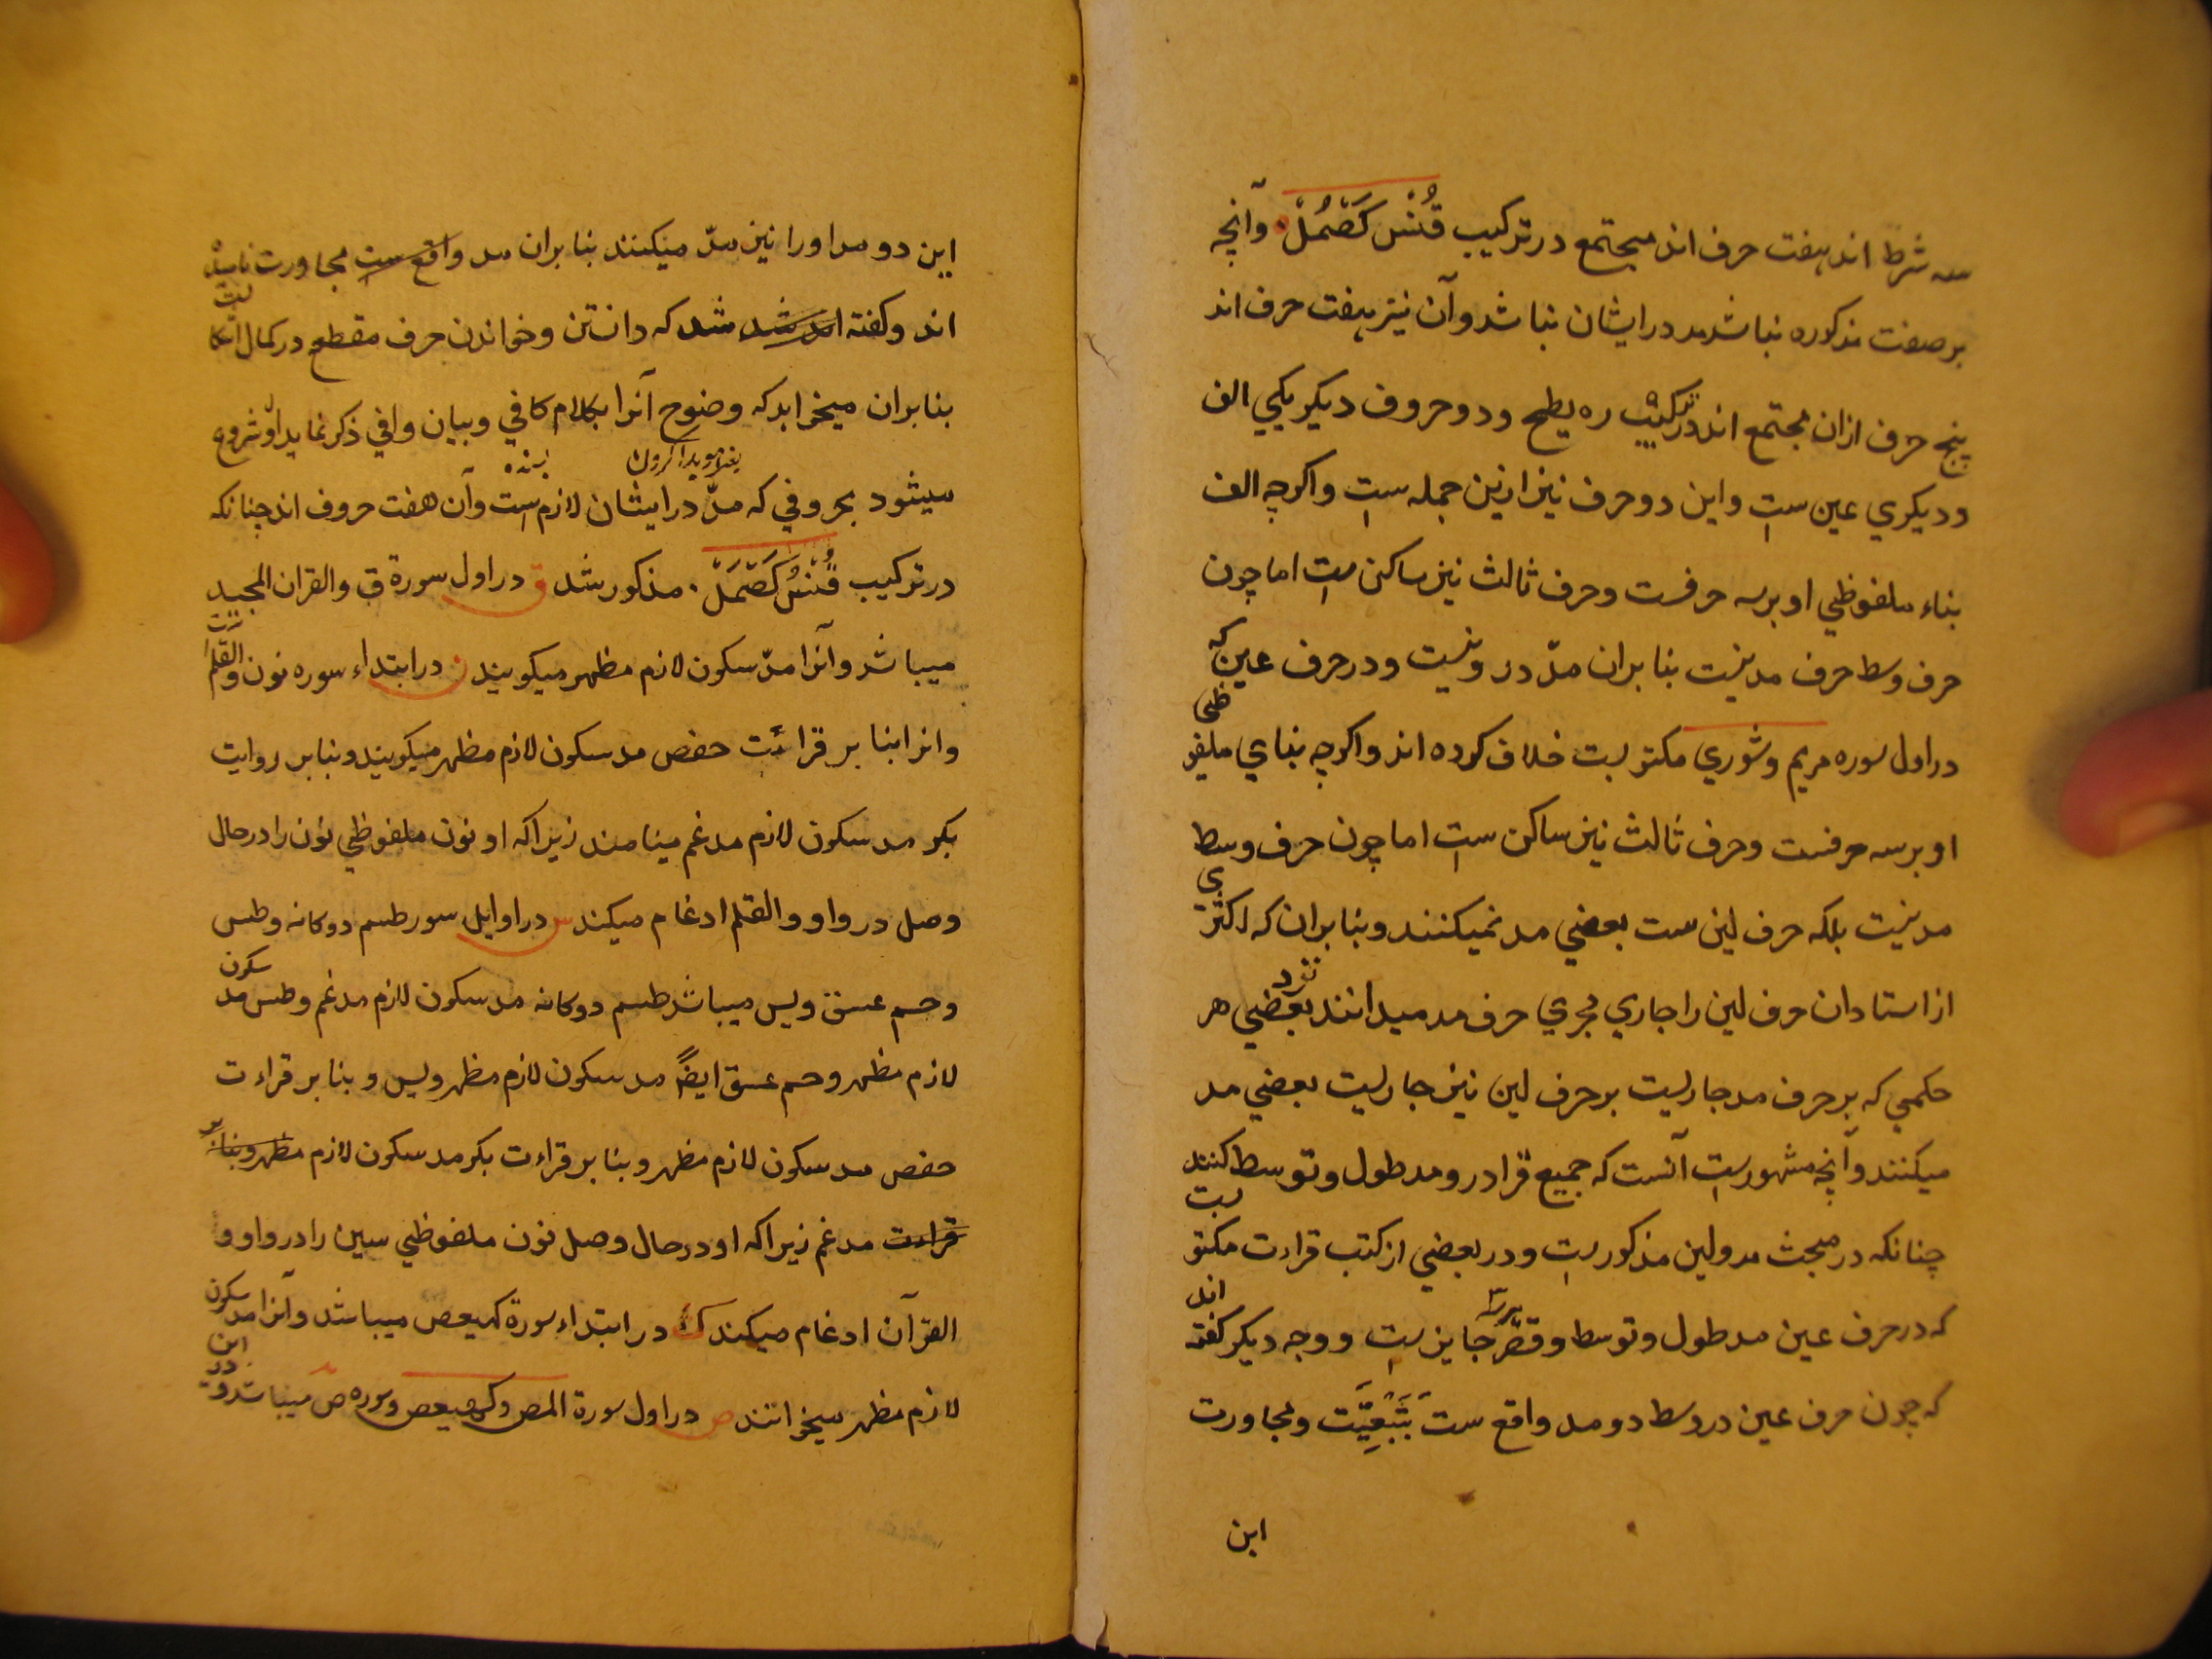 سه شرط اند هفت حرف اند مجتمع در تركيب قُنْسُ كَصَمُلْ وآنچه
بر صفت مذكوره نباشد مد در ايشان نباشد وآن نيز هفت حرف اند
پنج حرف ازان مجتمع اند در تركيب ره يطح ودو حروف ديكر يكي الف
وديكري عين ست واين دو حرف نيز ازين جمله ست واكرچه الف
بناء ملفوظي او بر سه حرفست وحرف ثالث نيز ساكن ست اما چون
حرف وسط حرف مد نيست بنابران مدّ در و نيست ودر حرف عين كه
در اول سوره مريم وشوري مكتوبست خلاف كرده اند واكرچه بناي ملفوظي
او بر سه حرفست وحرف ثالث نيز ساكن ست اما چون حرف وسط
مد نيست بلكه حرف لين ست بعضي مد نميكنند وبنابران كه اكثري
از استادان حرف لين را جاري مجري حرف مد ميدانند نزد بعضي هر
حكمي كه بر حرف مد جاريست بر حرف لين نيز جاريست بعضي مد
ميكنند وآنچه مشهورست آنست كه جميع قرا در و مد طول وتوسط كنند
چنانكه در مبحث مد ولين مذكورست ودر بعضي از كتب قراءت مكتوبست
كه در حرف عين مد طول وتوسط وقصر جايزست ووجه ديكر كفته اند
كه چون حرف عين در وسط دو مد واقع ست بَتَبْعِيَّت ومجاورت
اين
اين دو مد اورا نيز مدّ ميكنند بنابران مد واقع ست مجاورت ناميده
اند وكفته اند شد شد كه دانستن وخواندن حرف مقطع در كمال
بنابران ميخواهد كه وضوح آنرا بكلام كافي وبيان وافي ذكر نمايد اول شروع
ميشود بحروفي كه مدّ در ايشان لازم ست وآن هفت حروف اند چنانكه
در تركيب قُنْسُ كَصَمَلْ مذكور شد ق در اول سورة ق والقران المجيد
ميباشد وآنرا مدّ سكون لازم مظهر ميكويند ن در ابتداء سوره نون والقلم
وانرا بنا بر قراءت حفص مد سكون لازم مظهر ميكويند وبنا بر روايت
بكر مد سكون لازم مدغم مينامند زيراكه او نون ملفوظي نون را در حال
وصل در واو والقلم ادغام ميكند س در اوايل سور طسم دوكانه وطس
وحم عسق ويس ميباشد طسم دوكانه مد سكون لازم مدغم وطس مد سكون
لازم مظهر وحم عسق ايضاً مد سكون لازم مظهر ويس و بنا بر قراءت
حفص مد سكون لازم مظهر وبنا بر قراءت بكر مد سكون لازم مظهر وبنا بر
قراءت مدغم زيراكه او در حال وصل نون ملفوظي سين را در واو و
القرآن ادغام ميكند ك در ابتداء سورة كهيعص ميباشد وآنرا مد سكون
لازم مظهر ميخوانند ص در اول سورة المص وكهيعص وسوره ص ميباشد و